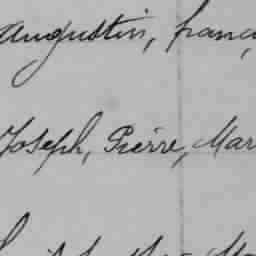 Augustin, franç
Joseph, Pierre, Mar